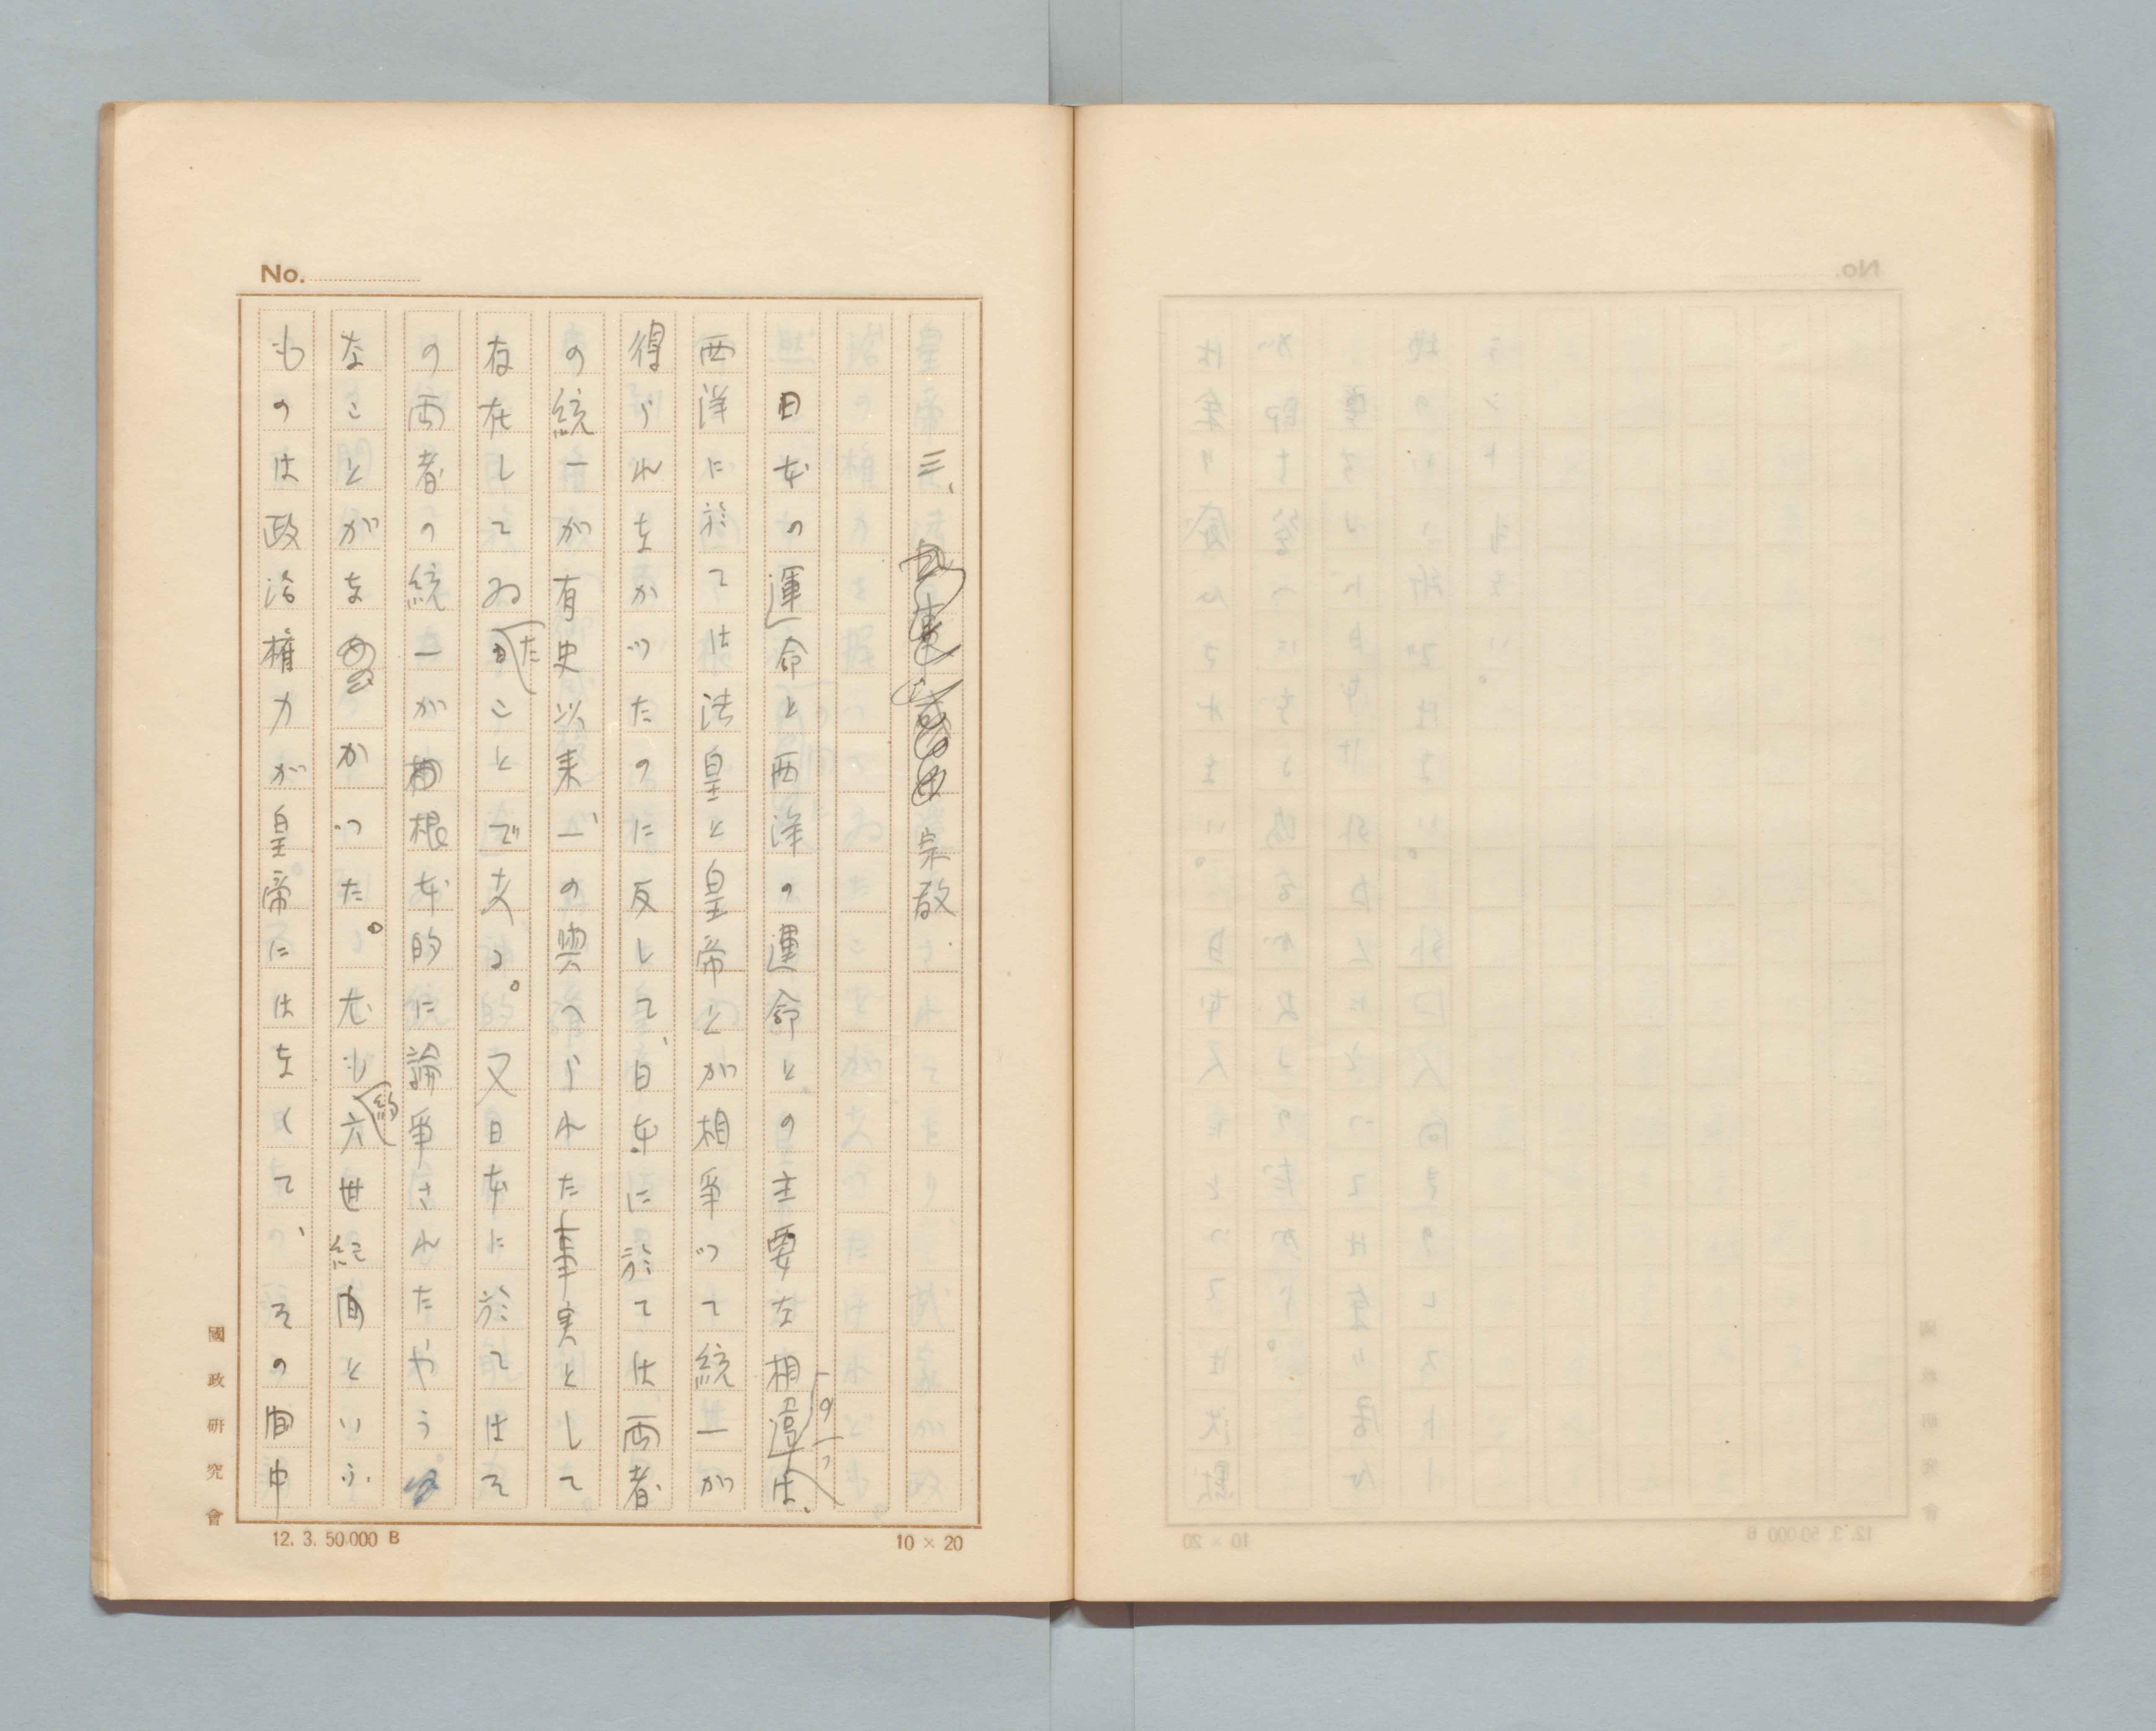 No.
三、宗教
日本の運命と西洋の運命との主要な相違の一つは、
西洋に於ては法皇と皇帝とが相爭つて統一が
得られなかつたのに反して、日本に於ては両者
の統一が有史以来一の與へられた事実として
存在してゐたことで天る。又日本に於てはそ
の両者の統一が根本的に論爭されたやうな
なことがなかつた。尤も約六世紀間といふ
ものは政治権力が皇帝にはなくて、その間中
國政硏究會
12. 3. 50.000 B
10 × 20